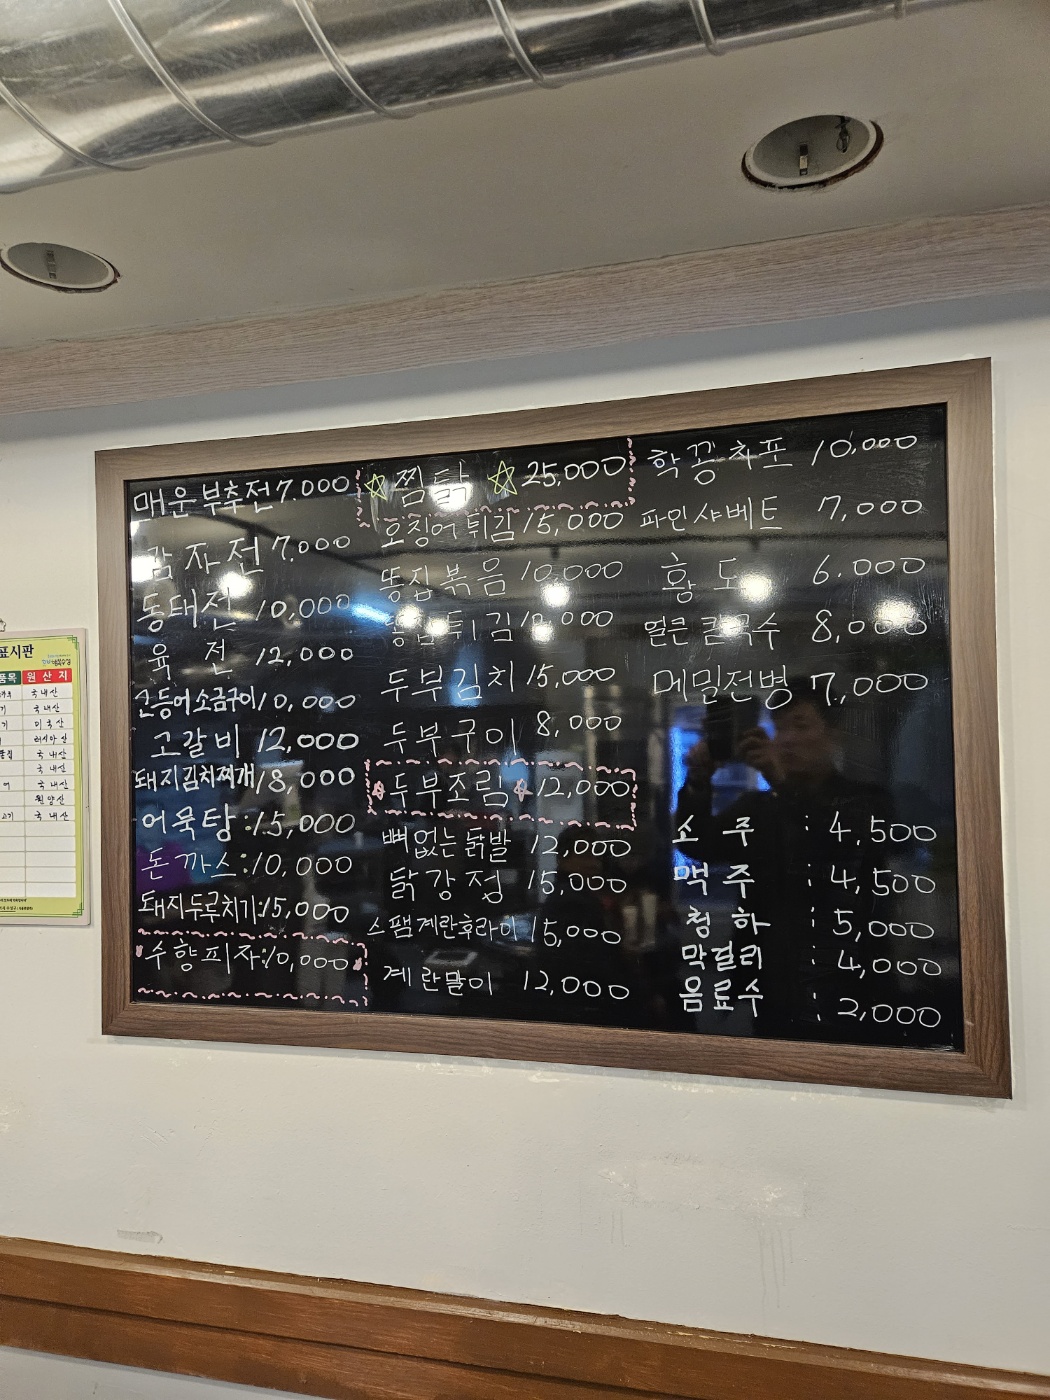 매운부추전 7,000
감자전 7,000
동태전 10,000
육 전 12,000
고등어소금구이 10,000
고갈비 12,000
돼지김치찌개 18,000
어묵탕:15,000
돈까스:10,000
돼지두루치기:15,000
수향피자:10,000
☆찜닭☆25,000
오징어튀김 15,000
똥집볶음 10,000
똥집튀김 10,000
두부김치 15,000
두부구이 8,000
두부조림 12,000
뼈없는닭발 12,000
닭강정 15,000
스팸계란후라이 15,000
계란말이 12,000
학꽁치포 10,000
파인샤베트 7,000
황 도 6.000
얼큰칼국수 8,000
메밀전병 7,000
소 주 : 4,500
맥 주 : 4,500
청 하 : 5,000
막걸리 : 4,000
음료수 : 2,000
표시판
품목 원산지
국내산
국내산
미국산
러시아산
국내산
국내산
국내산
원양산
국내산